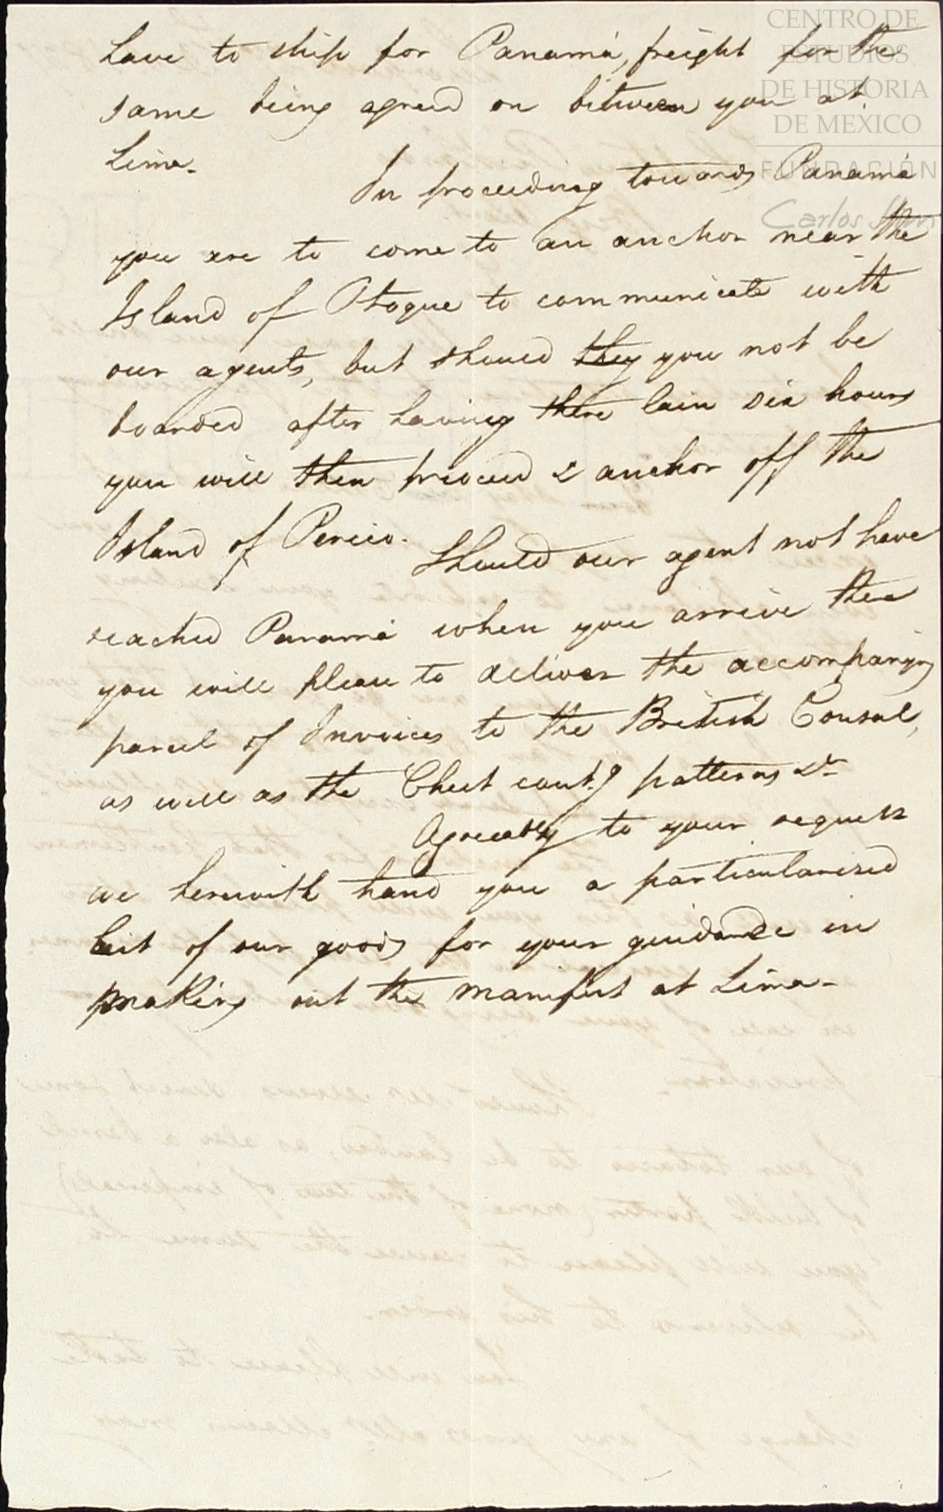 CENTRO DE
ESTUDIOS
DE HISTORIA
DE MEXICO
FUNDACIÓN
Carlos Slim
have to ship for Panamá, freight for the
same being agreed on between you at
Lima.
In proceeding towards Panamá
you are to come to an anchor near the
Island of Otoque to communicate with
our agents, but should they you not be
boarded after having there lain six hours
you will then proceed & anchor off the
Island of Perico.
Should our agent not have
reached Panamá when you arrive there
you will please to deliver the accompanyg
parcel of Invoices to the British Consul,
as well as the Chest contg patterns &c
Agreeably to your request
we herewith hand you a particularised
list of our goods for your guidance in
making out the manifest at Lima.